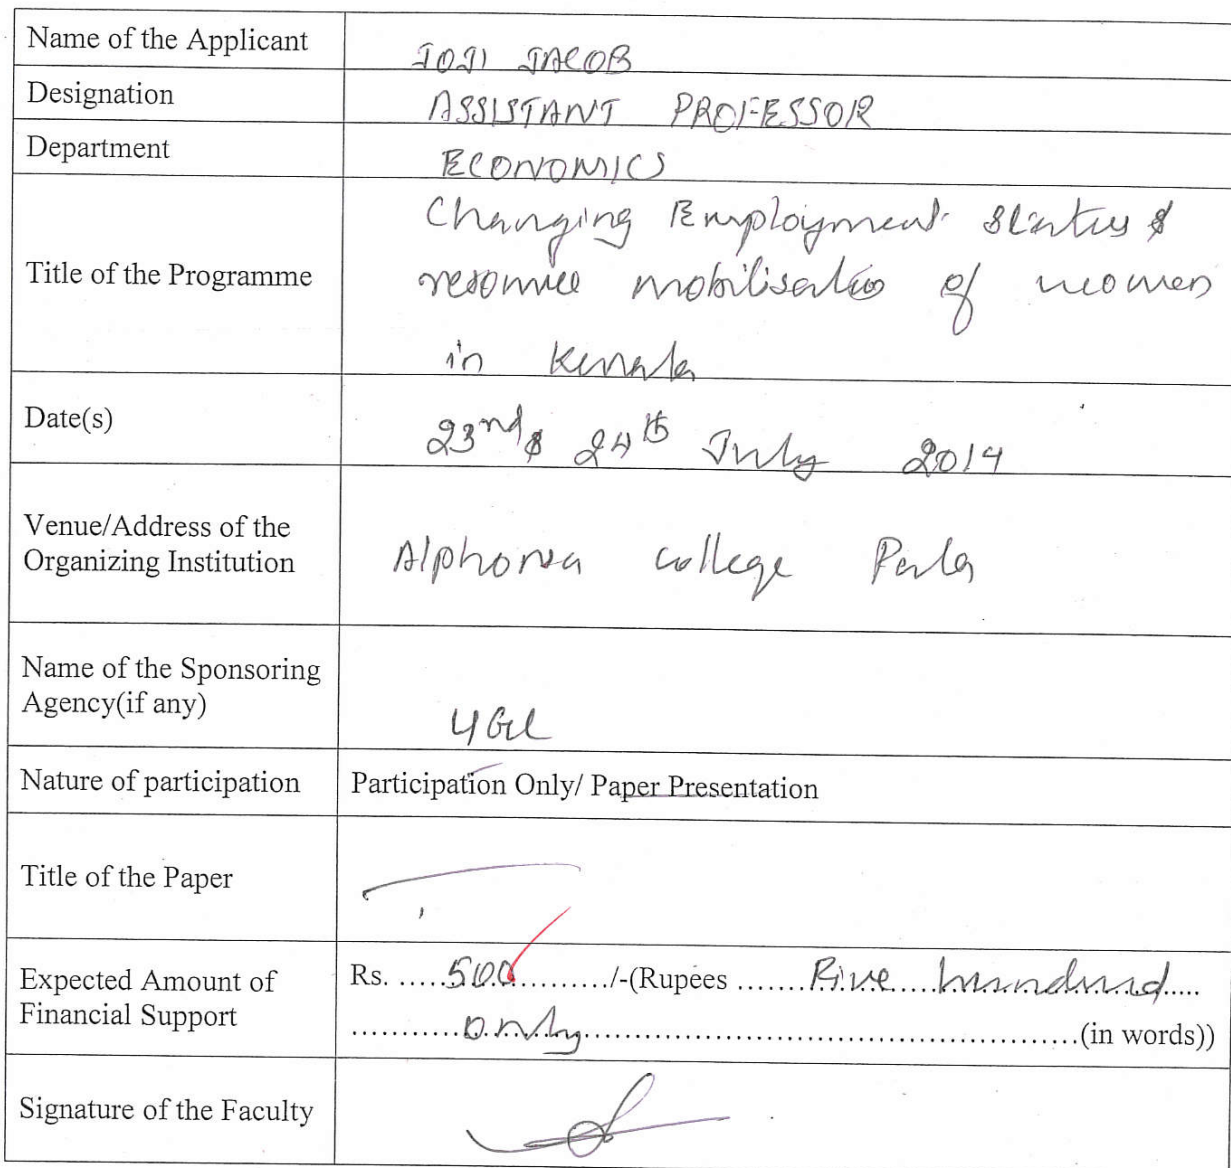 Name of the Applicant JOJI JACOB
Designation ASSISTANT PROFESSOR
Department ECONOMICS
Changing Employment Status &
Title of the Programme resource mobilisation of women
in Kerala
Date(s) 23nd & 24th July 2014
Venue/Address of the
Organizing Institution Alphonsa college Pala
Name of the Sponsoring
Agency(if any) UGC
Nature of participation Participation Only/ Paper Presentation
Title of the Paper
Expected Amount of Rs. .....500........../-(Rupees .......Five.....hundred.....
Financial Support ............only..................................................(in words))
Signature of the Faculty